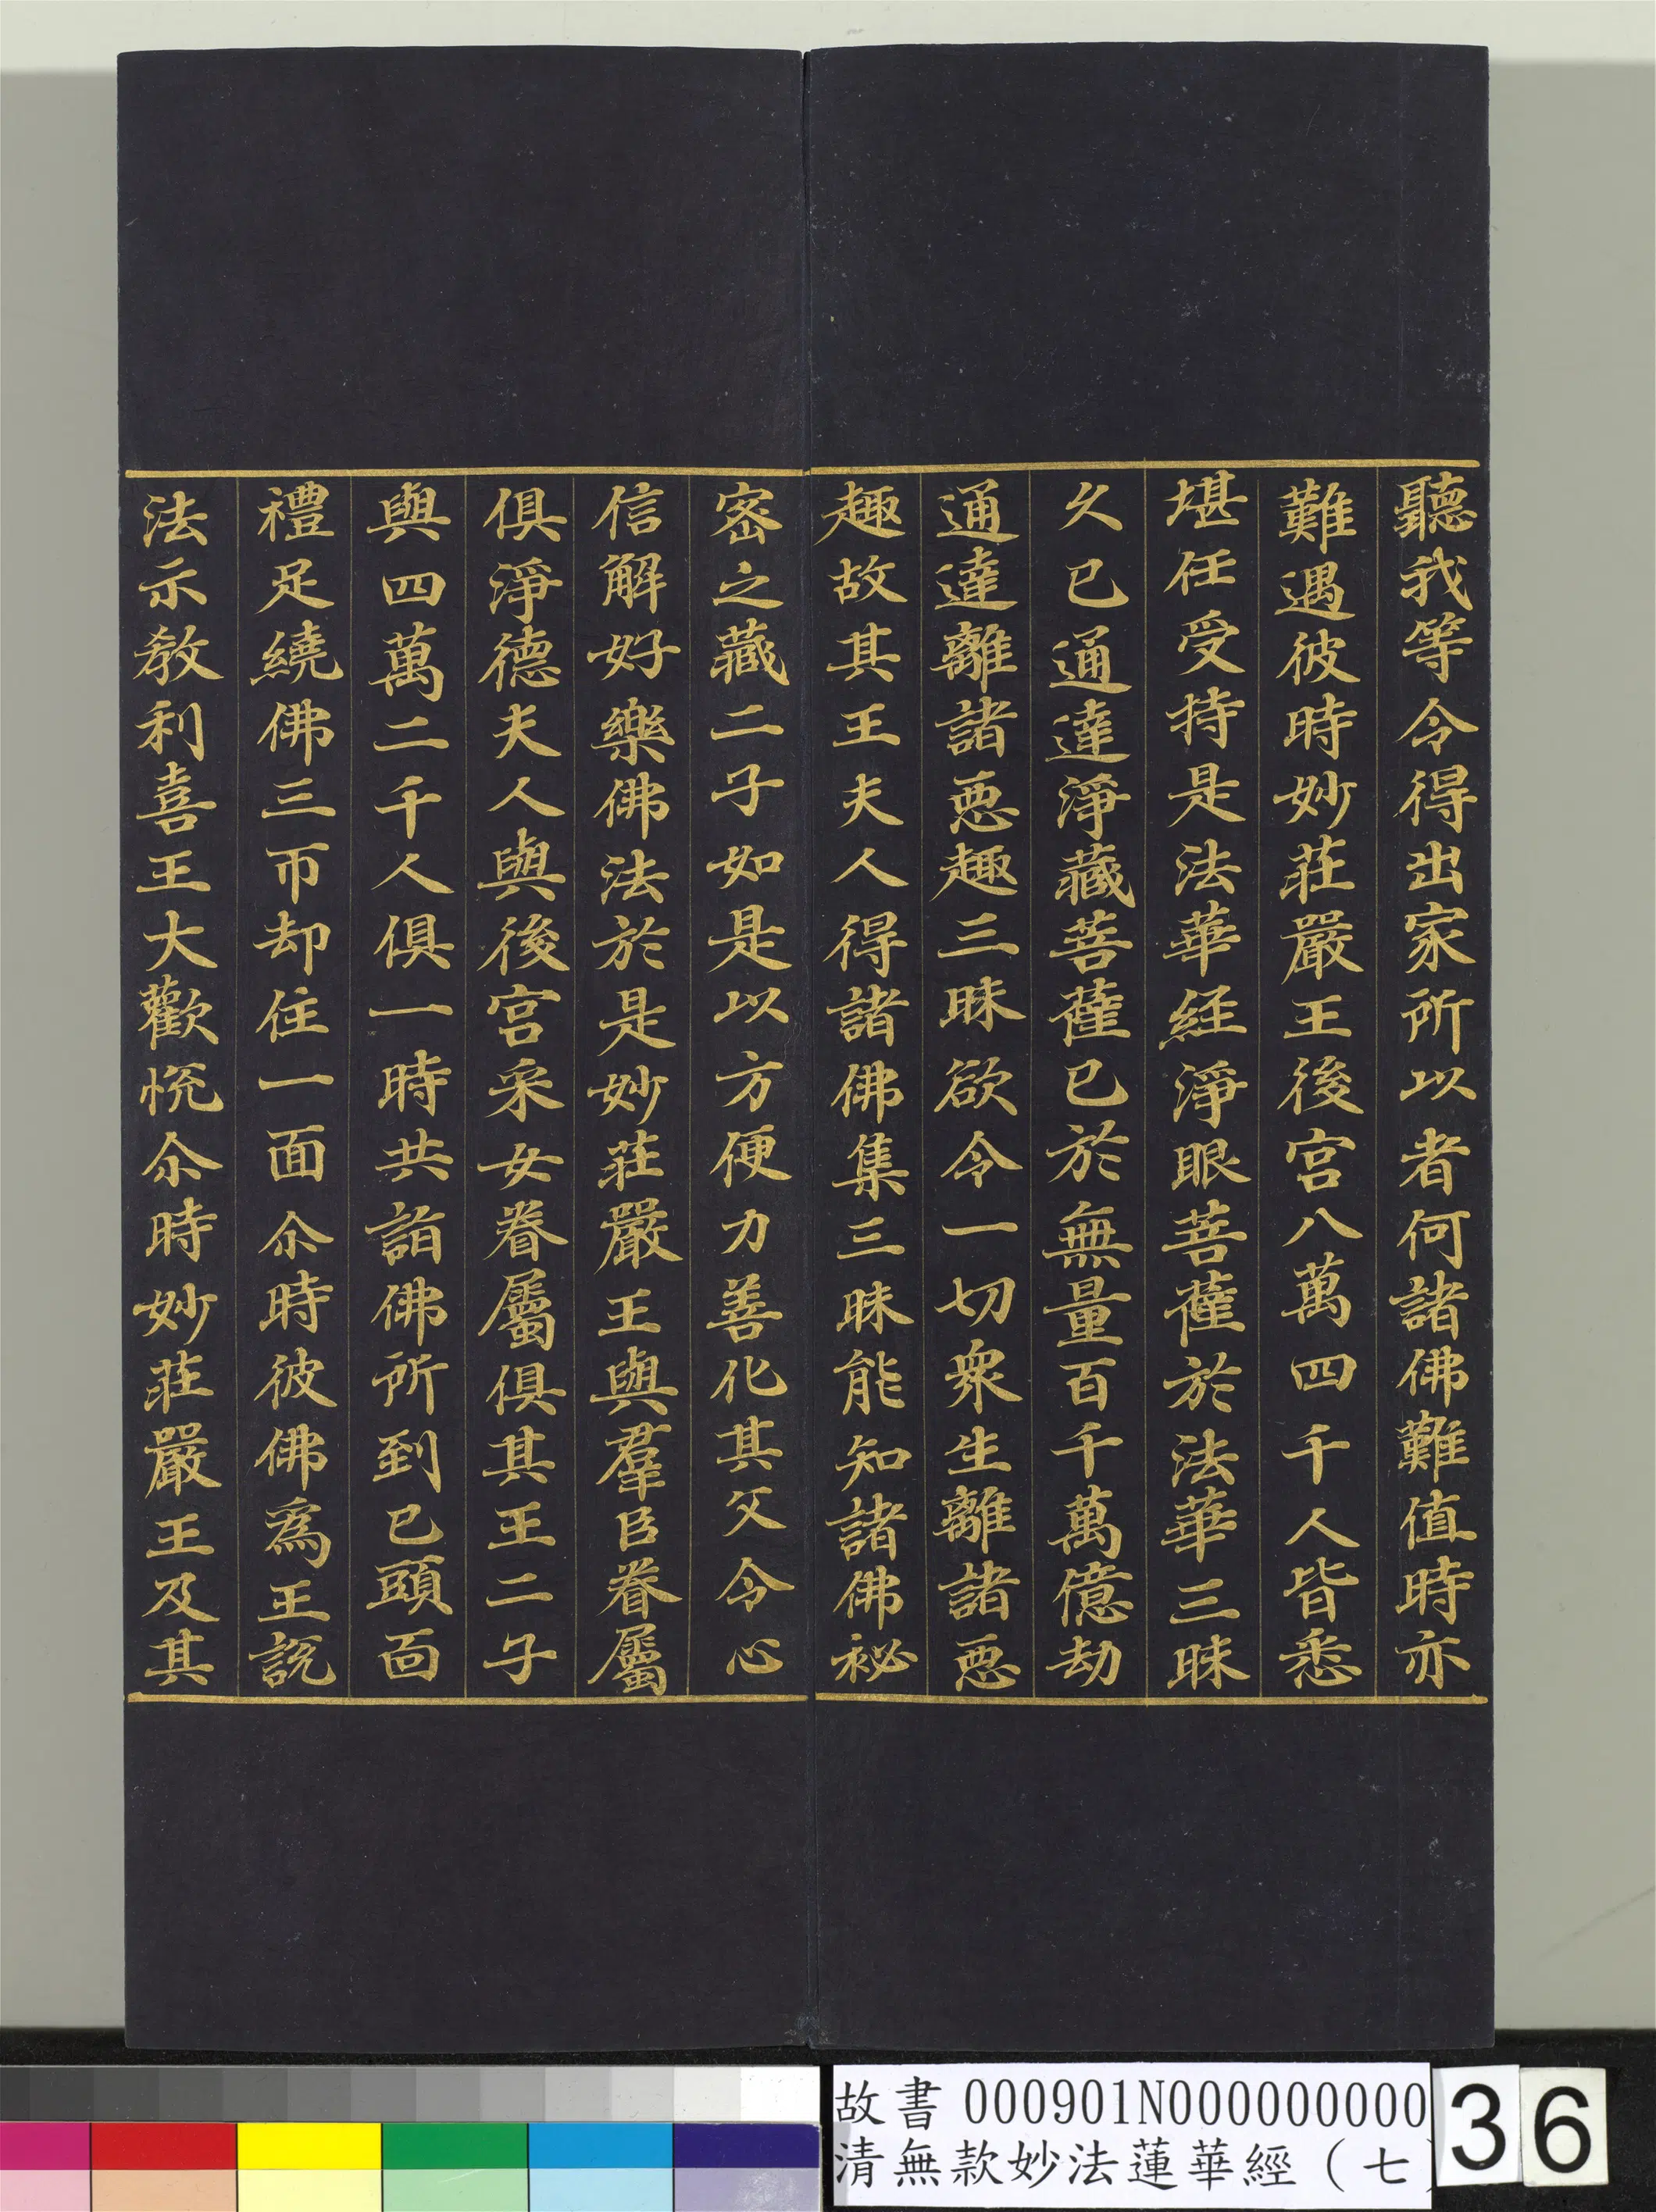 聽我等令得出家所以者何諸佛難值時亦
難遇彼時妙莊嚴王後宮八萬四千人皆悉
堪任受持是法華經淨眼菩薩於法華三昧
久已通達淨藏菩薩已於無量百千萬億劫
通達離諸惡趣三昧欲令一切衆生離諸惡
趣故其王夫人得諸佛集三昧能知諸佛祕
密之藏二子如是以方便力善化其父令心
信解好樂佛法於是妙莊嚴王與羣臣眷屬
俱淨德夫人與後宮采女眷屬俱其王二子
與四萬二千人俱一時共詣佛所到已頭面
禮足繞佛三帀却住一面尒時彼佛爲王說
法示教利喜王大歡悅尒時妙莊嚴王及其
故書 000901N000000000
清無款妙法蓮華經（七
36